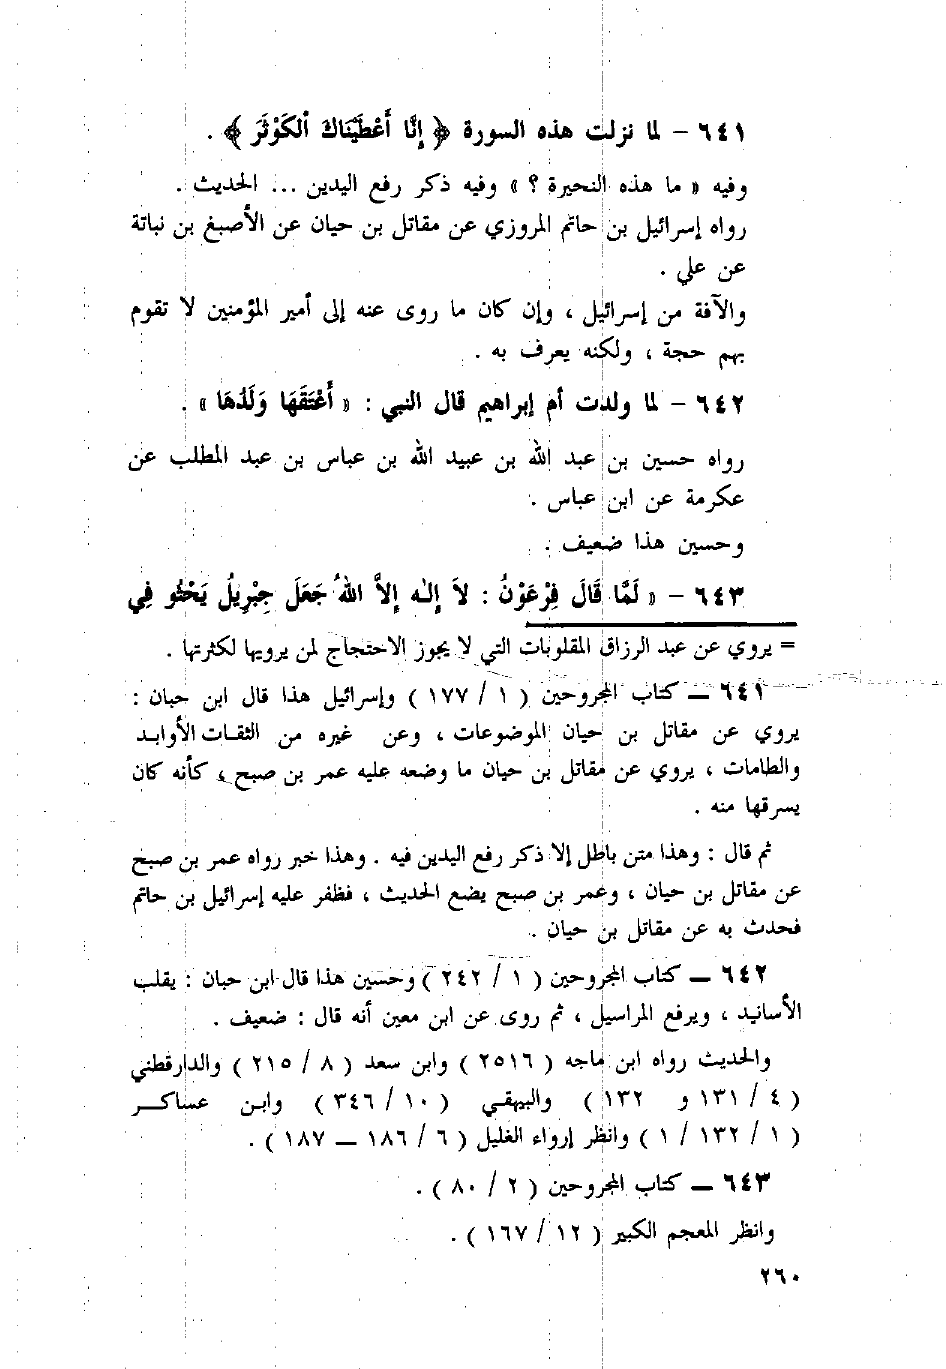 ٦٤١ - لما نزلت هذه السورة ﴿ إِنَّا أَعْطَيْنَاكَ ٱلكَوْثَرَ ﴾ .
وفيه « ما هذه النحيرة ؟ » وفيه ذكر رفع اليدين ... الحديث .
رواه إسرائيل بن حاتم المروزي عن مقاتل بن حيان عن الأصبغ بن نباتة
عن علي .
والآفة من إسرائيل ، وإن كان ما روى عنه إلى أمير المؤمنين لا تقوم
بهم حجة ، ولكنه يعرف به .
٦٤٢ - لما ولدت أم إبراهيم قال النبي : « أَعْتَقَهَا وَلَدُهَا » .
رواه حسين بن عبد الله بن عبيد الله بن عباس بن عبد المطلب عن
عكرمة عن ابن عباس .
وحسين هذا ضعيف .
٦٤٣ - « لَمَّا قَالَ فِرْعَوْنُ : لاَ إلٰه إلاَّ اللهُ جَعَلَ جِبْرِيلُ يَحْثُو فِي
= يروي عن عبد الرزاق المقلوبات التي لا يجوز الاحتجاج لمن يرويها لكثرتها .
٦٤١ ــ كتاب المجروحين ( ١ / ١٧٧ ) وإسرائيل هذا قال ابن حبان :
يروي عن مقاتل بن حيان الموضوعات ، وعن غيره من الثقات الأوابد
والطامات ، يروي عن مقاتل بن حيان ما وضعه عليه عمر بن صبح ، كأنه كان
يسرقها منه .
ثم قال : وهذا متن باطل إلا ذكر رفع اليدين فيه . وهذا خبر رواه عمر بن صبح
عن مقاتل بن حيان ، وعمر بن صبح يضع الحديث ، فظفر عليه إسرائيل بن حاتم
فحدث به عن مقاتل بن حيان .
٦٤٢ ــ كتاب المجروحين ( ١ / ٢٤٢ ) وحسين هذا قال ابن حبان : يقلب
الأسانيد ، ويرفع المراسيل ، ثم روى عن ابن معين أنه قال : ضعيف .
والحديث رواه ابن ماجه ( ٢٥١٦ ) وابن سعد ( ٨ / ٢١٥ ) والدارقطني
( ٤ / ١٣١ و ١٣٢ ) والبيهقي ( ١٠ / ٣٤٦ ) وابن عساكر
( ١ / ١٣٢ / ١ ) وانظر إرواء الغليل ( ٦ / ١٨٦ ــ ١٨٧ ) .
٦٤٣ ــ كتاب المجروحين ( ٢ / ٨٠ ) .
وانظر المعجم الكبير ( ١٢ / ١٦٧ ) .
٢٦٠